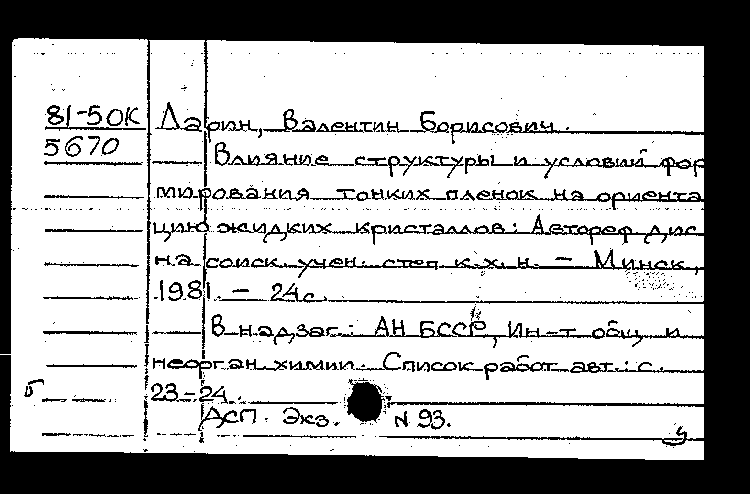 81-50К Ларин, Валентин Борисович.
5670 Влияние структуры и условий фор
мирования тонких пленок на ориента
цию жидких кристаллов: Автореф дис
на соиск. учен. степ к.х.н. — Минск,
1981. — 24с.
В надзаг.: АН БССР, Ин-т общ и
неорган химии. Список работ авт.: с.
б 23-24.
АСП. Экз. N 93.